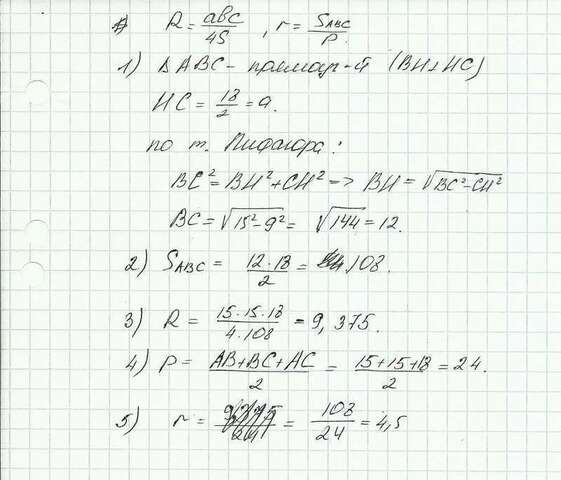 R = abc/4S , r = S_ABC/p.
1) Δ ABC - прямоуг-й (BH⊥HC)
HC = 18/2 = 9.
по т. Пифагора:
BC² = BH² + CH² => BH = √(BC²-CH²)
BC = √(15²-9²) = √144 = 12.
2) S_ABC = 12·18/2 = 108.
3) R = 15·15·18/4·108 = 9,375.
4) P = AB+BC+AC/2 = 15+15+18/2 = 24.
5) r = = 108/24 = 4,5